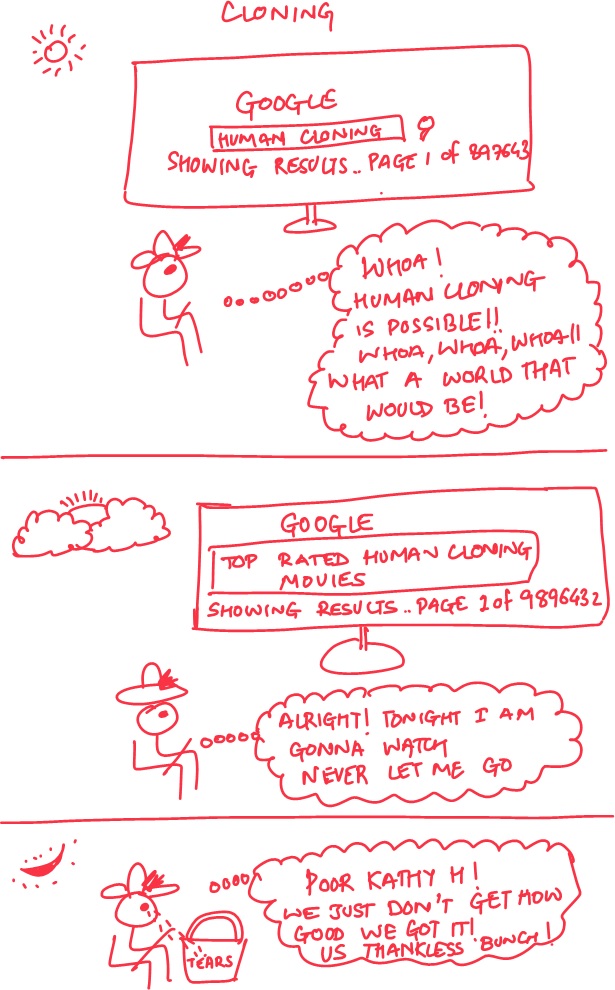 CLONING
GOOGLE
HUMAN CLONING
SHOWING RESULTS.. PAGE 1 of 897643
WHOA!
HUMAN CLONING
IS POSSIBLE!!
WHOA, WHOA, WHOA!!
WHAT A WORLD THAT
WOULD BE!
GOOGLE
TOP RATED HUMAN CLONING
MOVIES
SHOWING RESULTS.. PAGE 2 of 9896432
ALRIGHT! TONIGHT I AM
GONNA WATCH
NEVER LET ME GO
POOR KATHY H!
WE JUST DON'T GET HOW
GOOD WE GOT IT!
US THANKLESS BUNCH!
TEARS